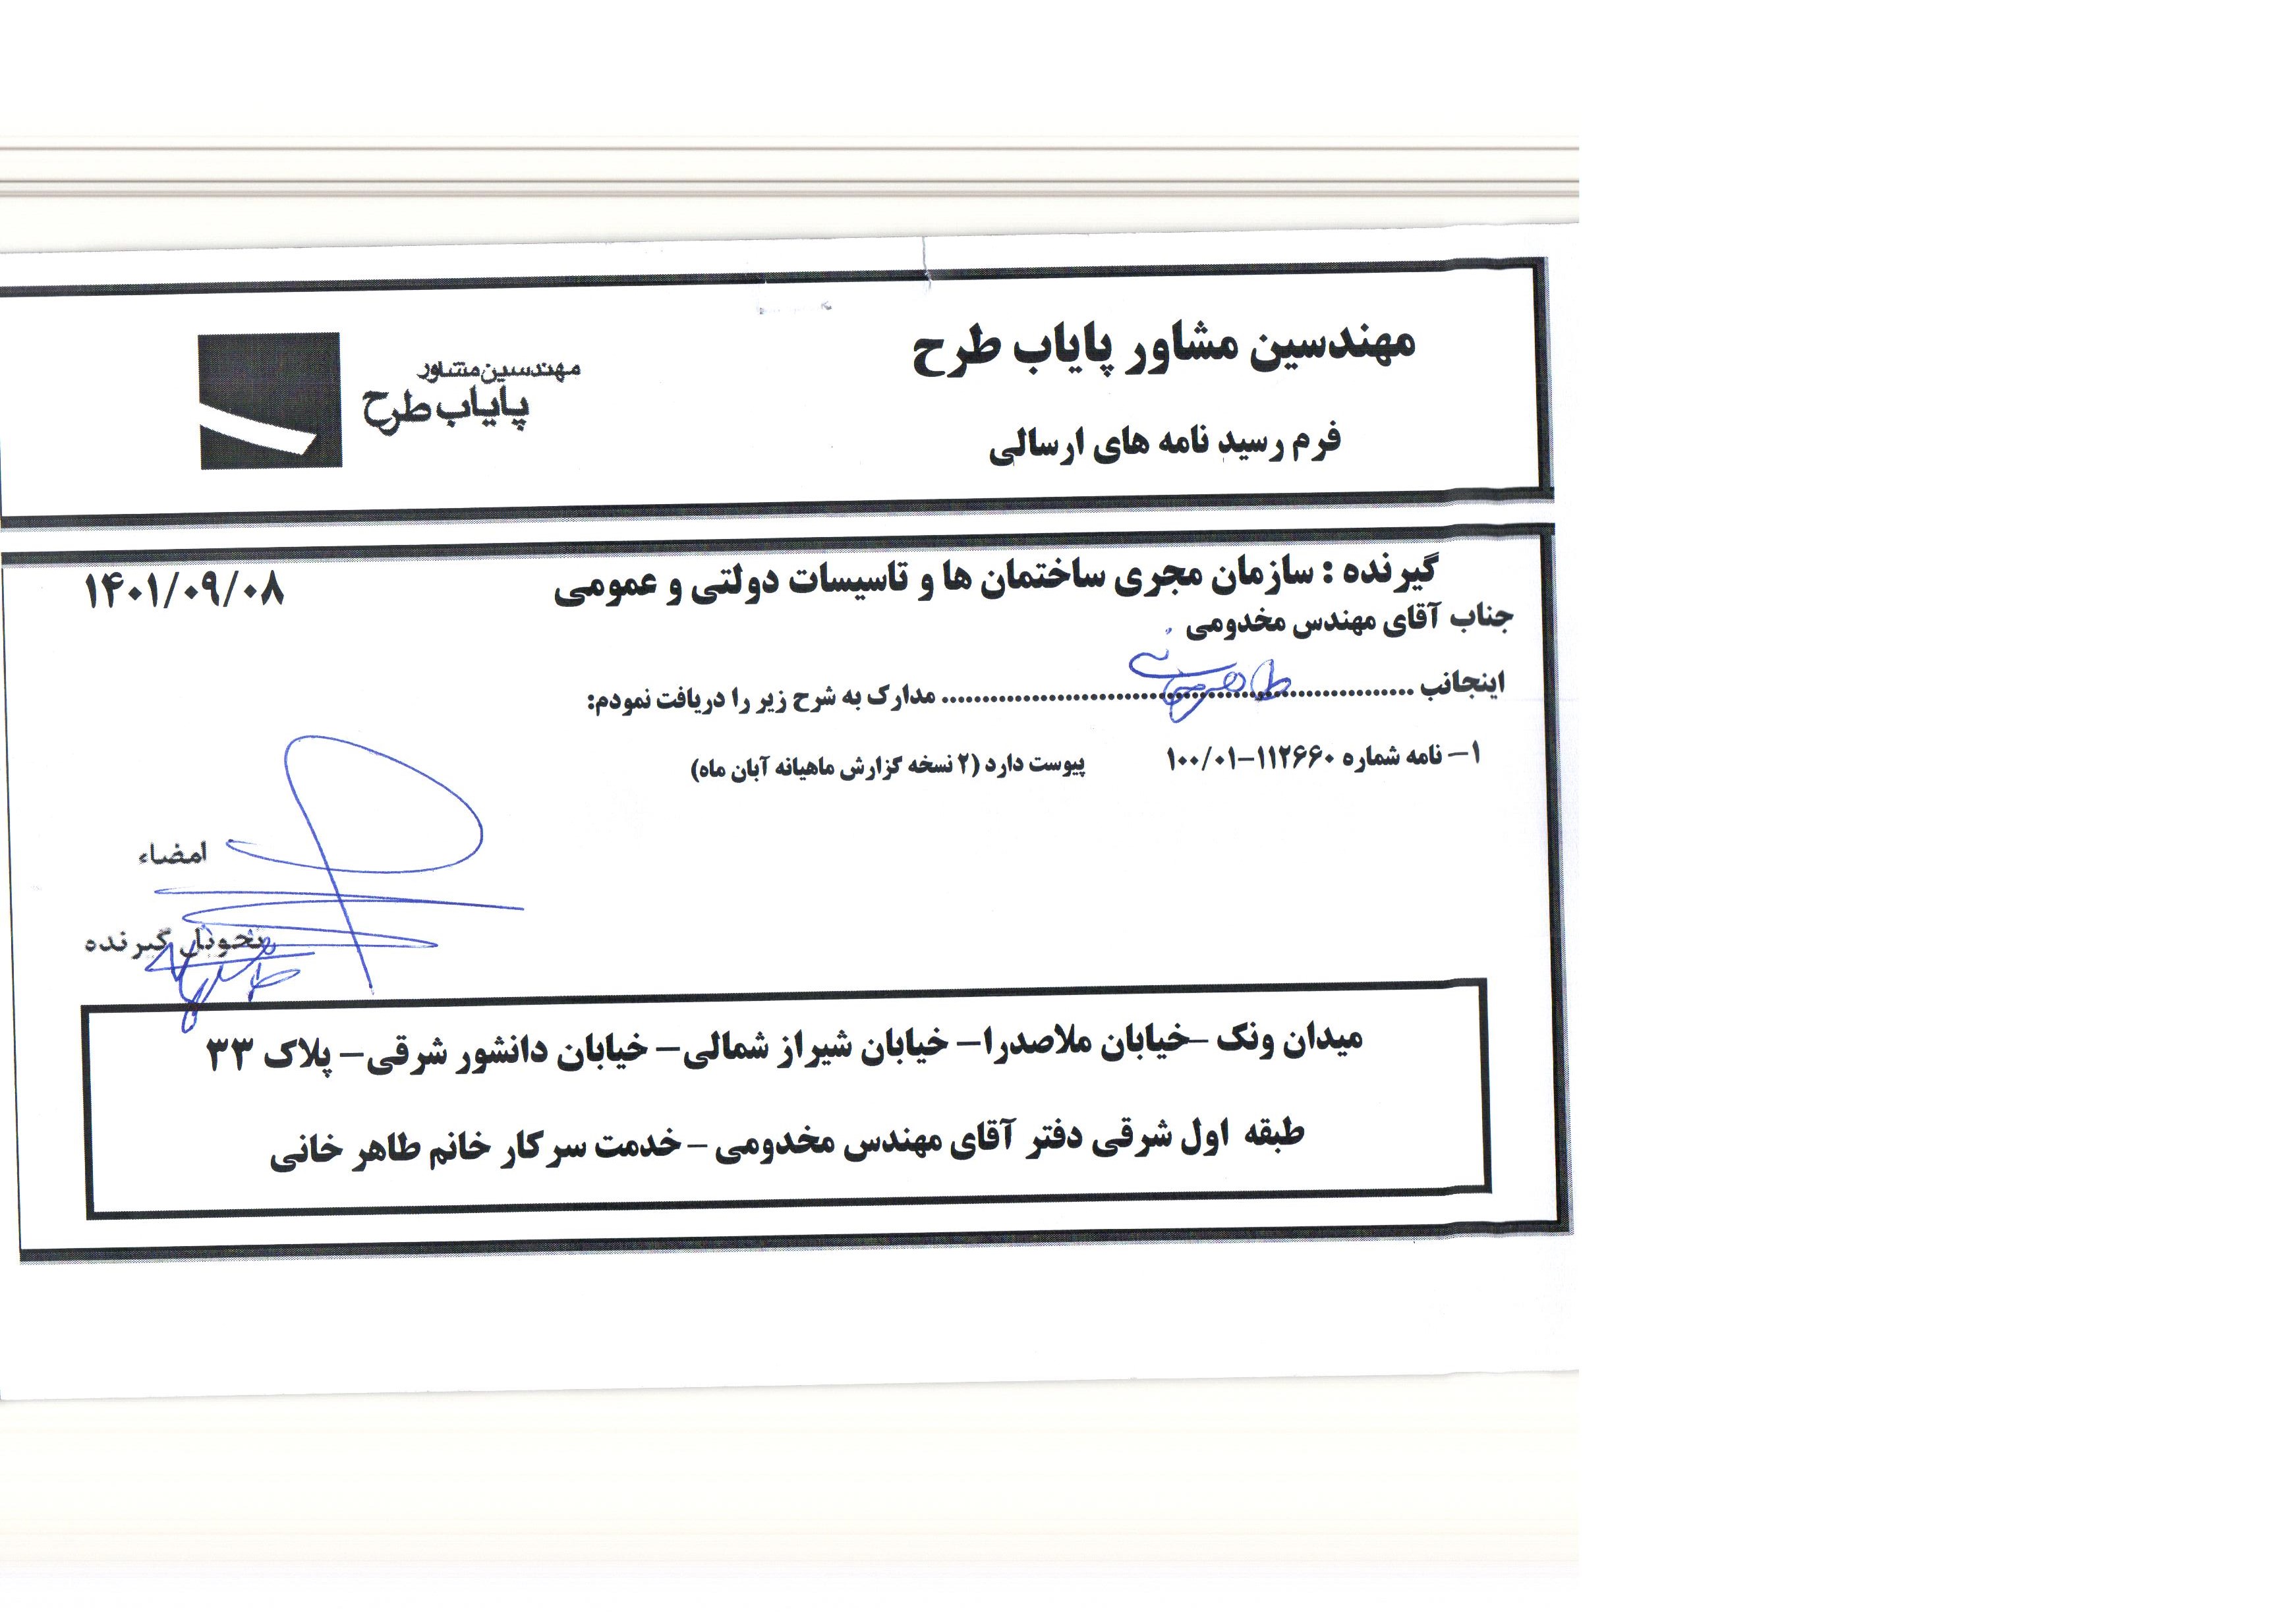 مهندسین مشاور پایاب طرح
مهندسین مشاور
پایاب طرح
فرم رسید نامه های ارسالی
گیرنده : سازمان مجری ساختمان ها و تاسیسات دولتی و عمومی
۱۴۰۱/۰۹/۰۸
جناب آقای مهندس مخدومی
اینجانب ........ طاهرخانی ........ مدارک به شرح زیر را دریافت نمودم:
۱– نامه شماره ۱۱۲۶۶۰–۱۰۰/۰۱ پیوست دارد (۲ نسخه گزارش ماهیانه آبان ماه)
امضاء
تحویل گیرنده
میدان ونک –خیابان ملاصدرا– خیابان شیراز شمالی– خیابان دانشور شرقی– پلاک ۳۳
طبقه اول شرقی دفتر آقای مهندس مخدومی – خدمت سرکار خانم طاهر خانی